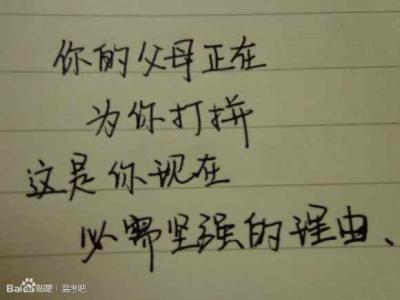 你的父母正在
为你打拼
这是你现在
必需坚强的理由、
Bai贴吧|高考吧